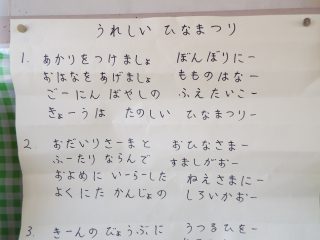 うれしい ひなまつり
1. あかりをつけましょ ぼんぼりにー
おはなをあげましょ もものはなー
ごーにんばやしの ふえたいこー
きょーうは たのしい ひなまつりー
2. おだいりさーまと おひなさまー
ふーたりならんで すましがおー
およめにいーらした ねえさまにー
よくにたかんじょの しろいかおー
3. きーんのびょうぶに うつるひをー